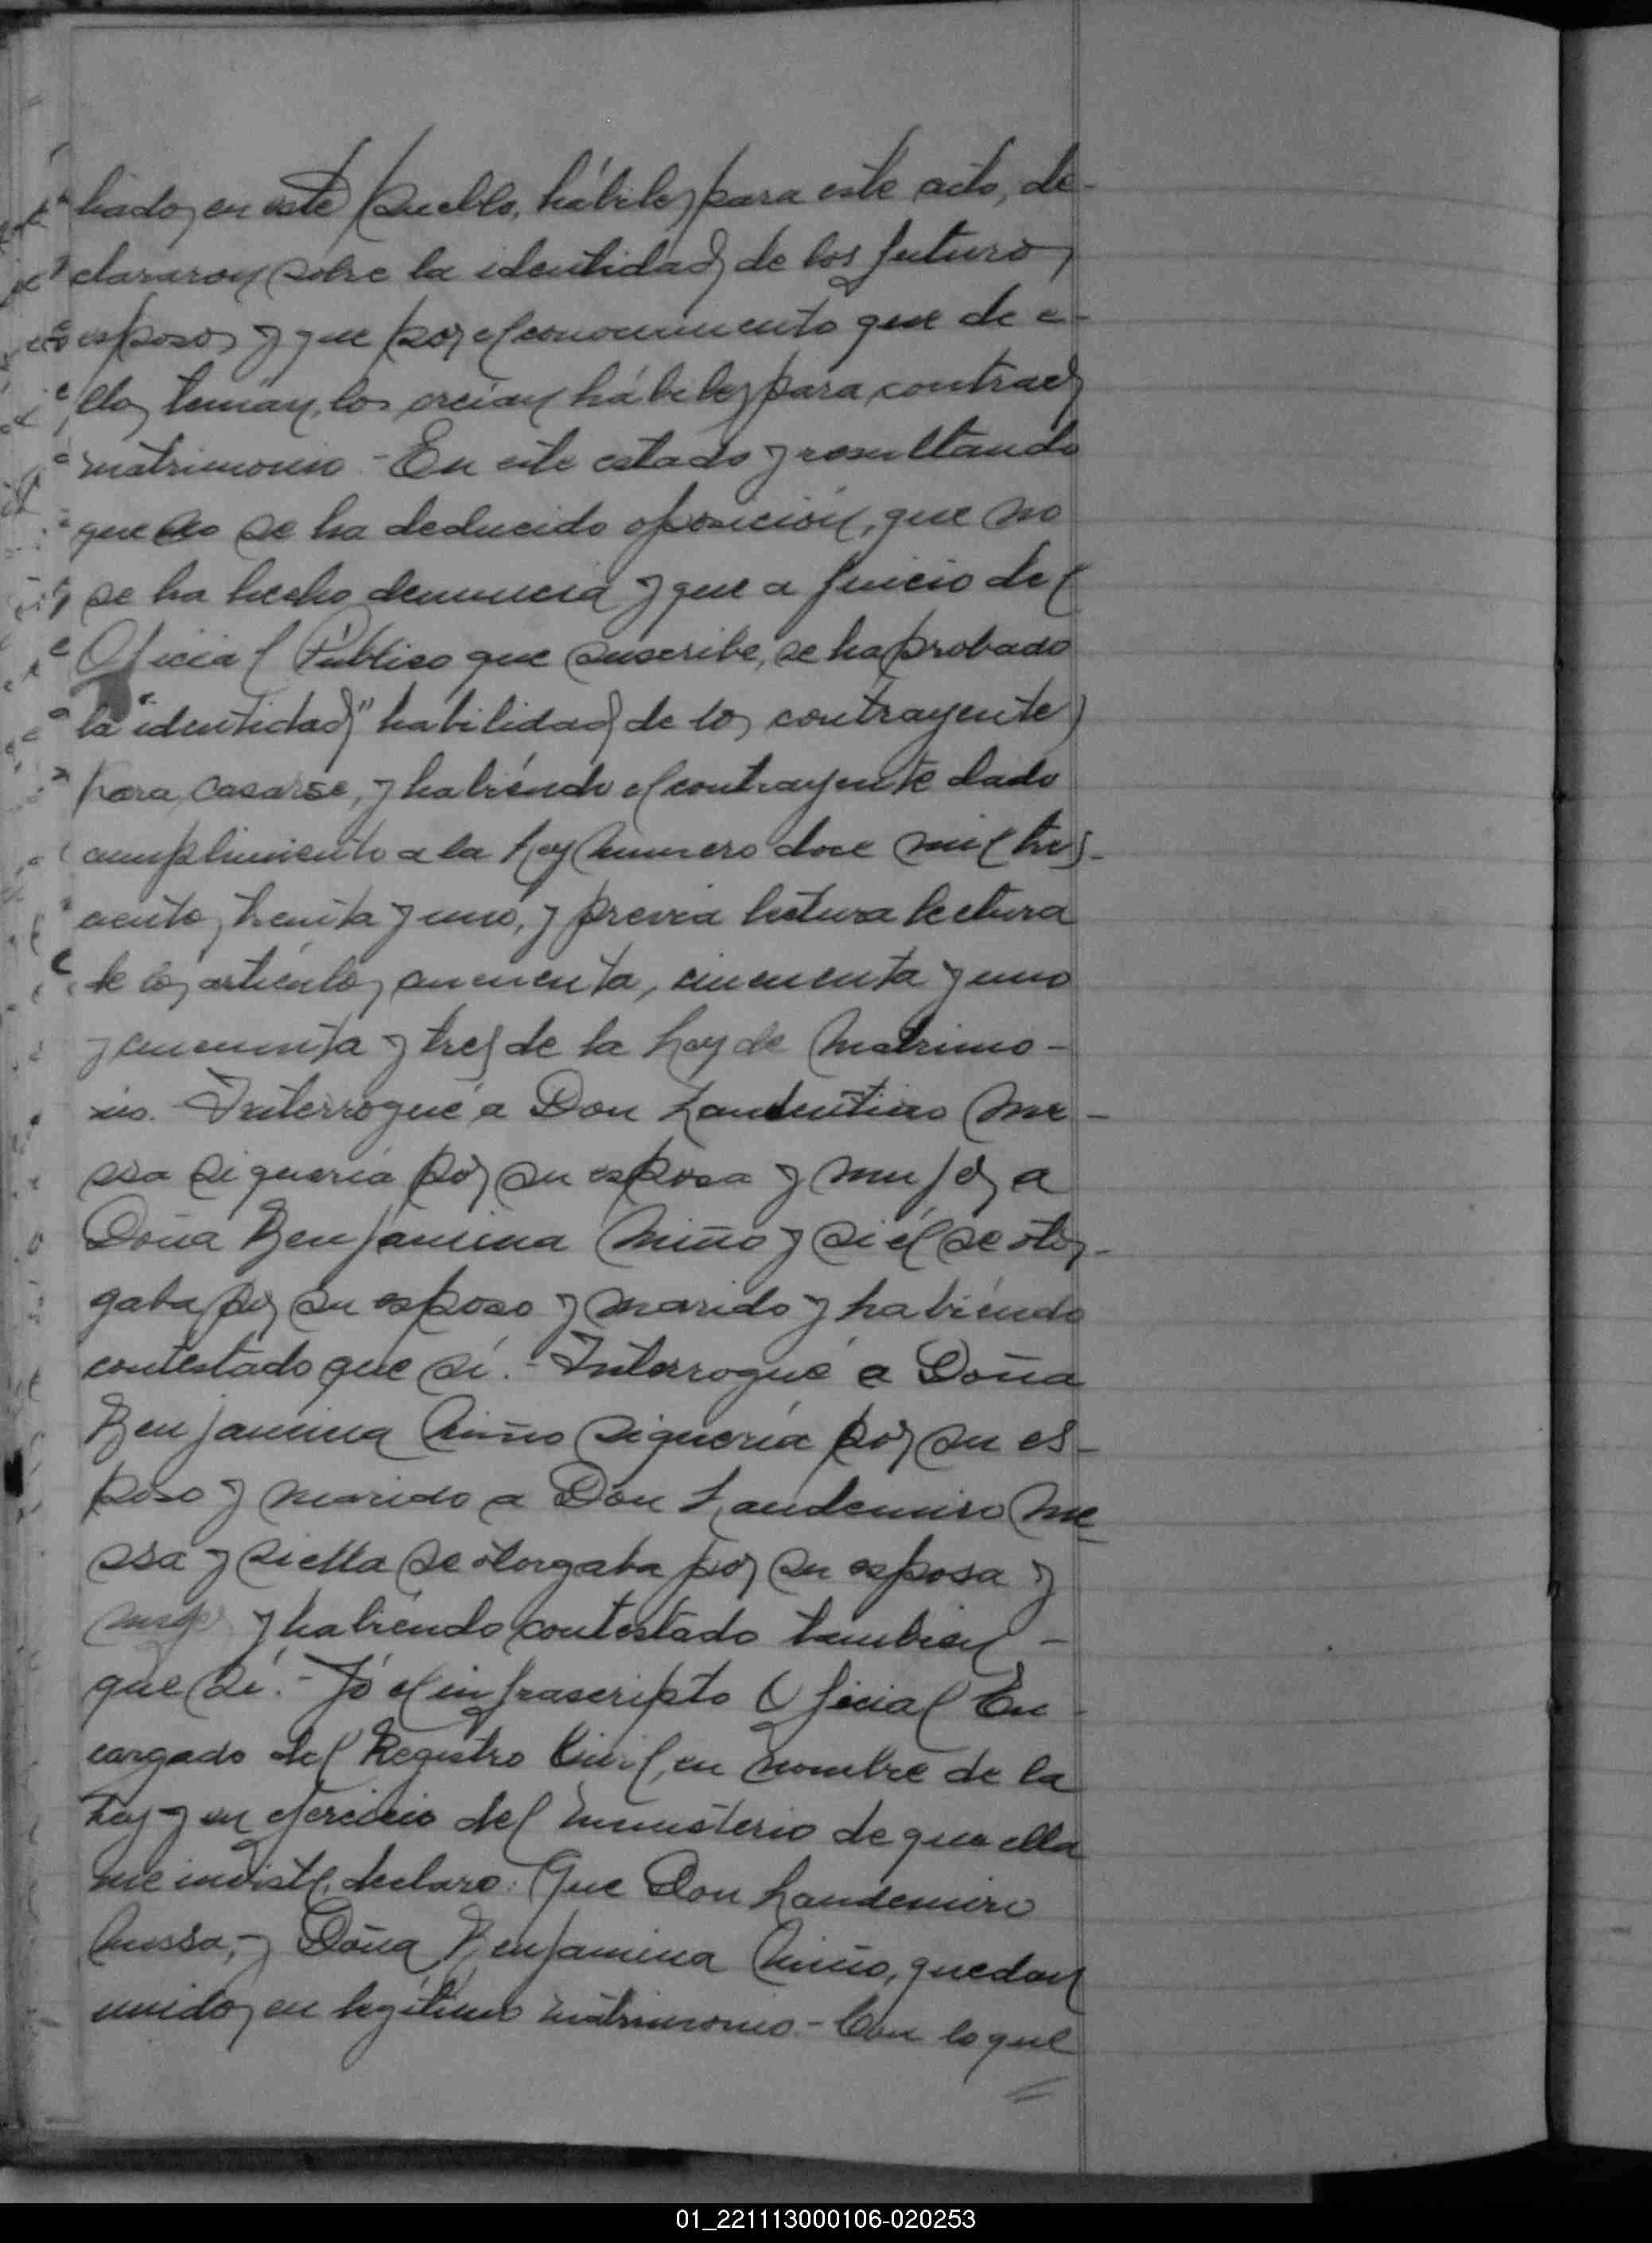 liados en este pueblo, hábiles para este acto, de-
clararon sobre la identidad de los futuros
esposos y que por el conocimiento que de e-
llos tenían, los creían hábiles para contraer
matrimonio.- En este estado y resultando
que no se ha deducido oposición, que no
se ha hecho denuncia y que a juicio del
Oficial Público que suscribe, se ha probado
la identidad y habilidad de los contrayentes
para casarse, y habiendo el contrayente dado
cumplimiento a la Ley número doce mil tres-
cientos treinta y uno, y previa lectura lectura
de los artículos cincuenta, cincuenta y uno
y cincuenta y tres de la Ley de Matrimo-
nio.- Interrogué a Don Me-
ssa si quería por su esposa y mujer a
Doña Benjamina Niño y si él se otor-
gaba por su esposo y marido y habiendo
contestado que sí.- Interrogué a Doña
Benjamina Niño si quería por su es-
poso y marido a Don Laudemiro Me
ssa y si ella se otorgaba por su esposa y
mujer y habiendo contestado tambien -
que sí.- Yó el infrascripto Oficial En-
cargado del Registro Civil, en nombre de la
Ley y en ejercicio del ministerio de que ella
me inviste, declaro: Que Don Laudemiro
Messa, y Doña Benjamina Niño, quedan
unidos en legítimo matrimonio.- Con lo que
01_221113000106-020253